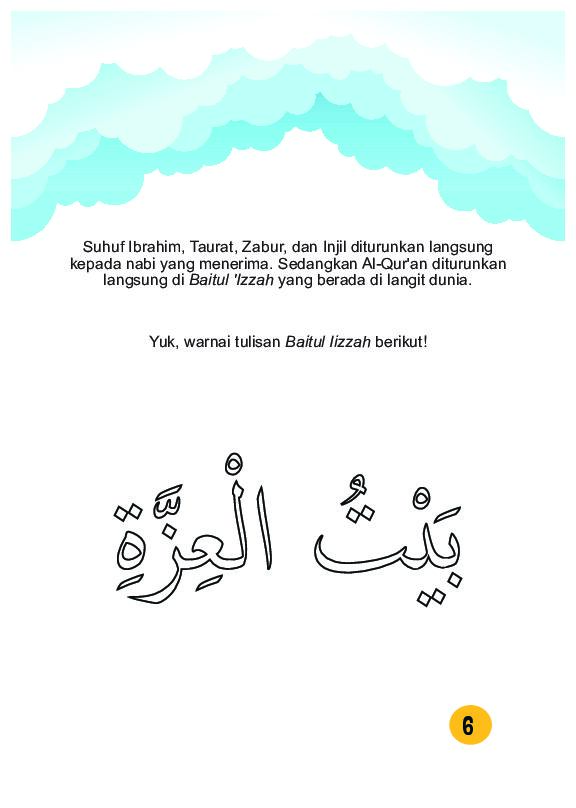 Suhuf Ibrahim, Taurat, Zabur, dan Injil diturunkan langsung
kepada nabi yang menerima. Sedangkan Al-Qur'an diturunkan
langsung di Baitul 'Izzah yang berada di langit dunia.
Yuk, warnai tulisan Baitul Iizzah berikut!
بَيْتُ الْعِزَّةِ
6